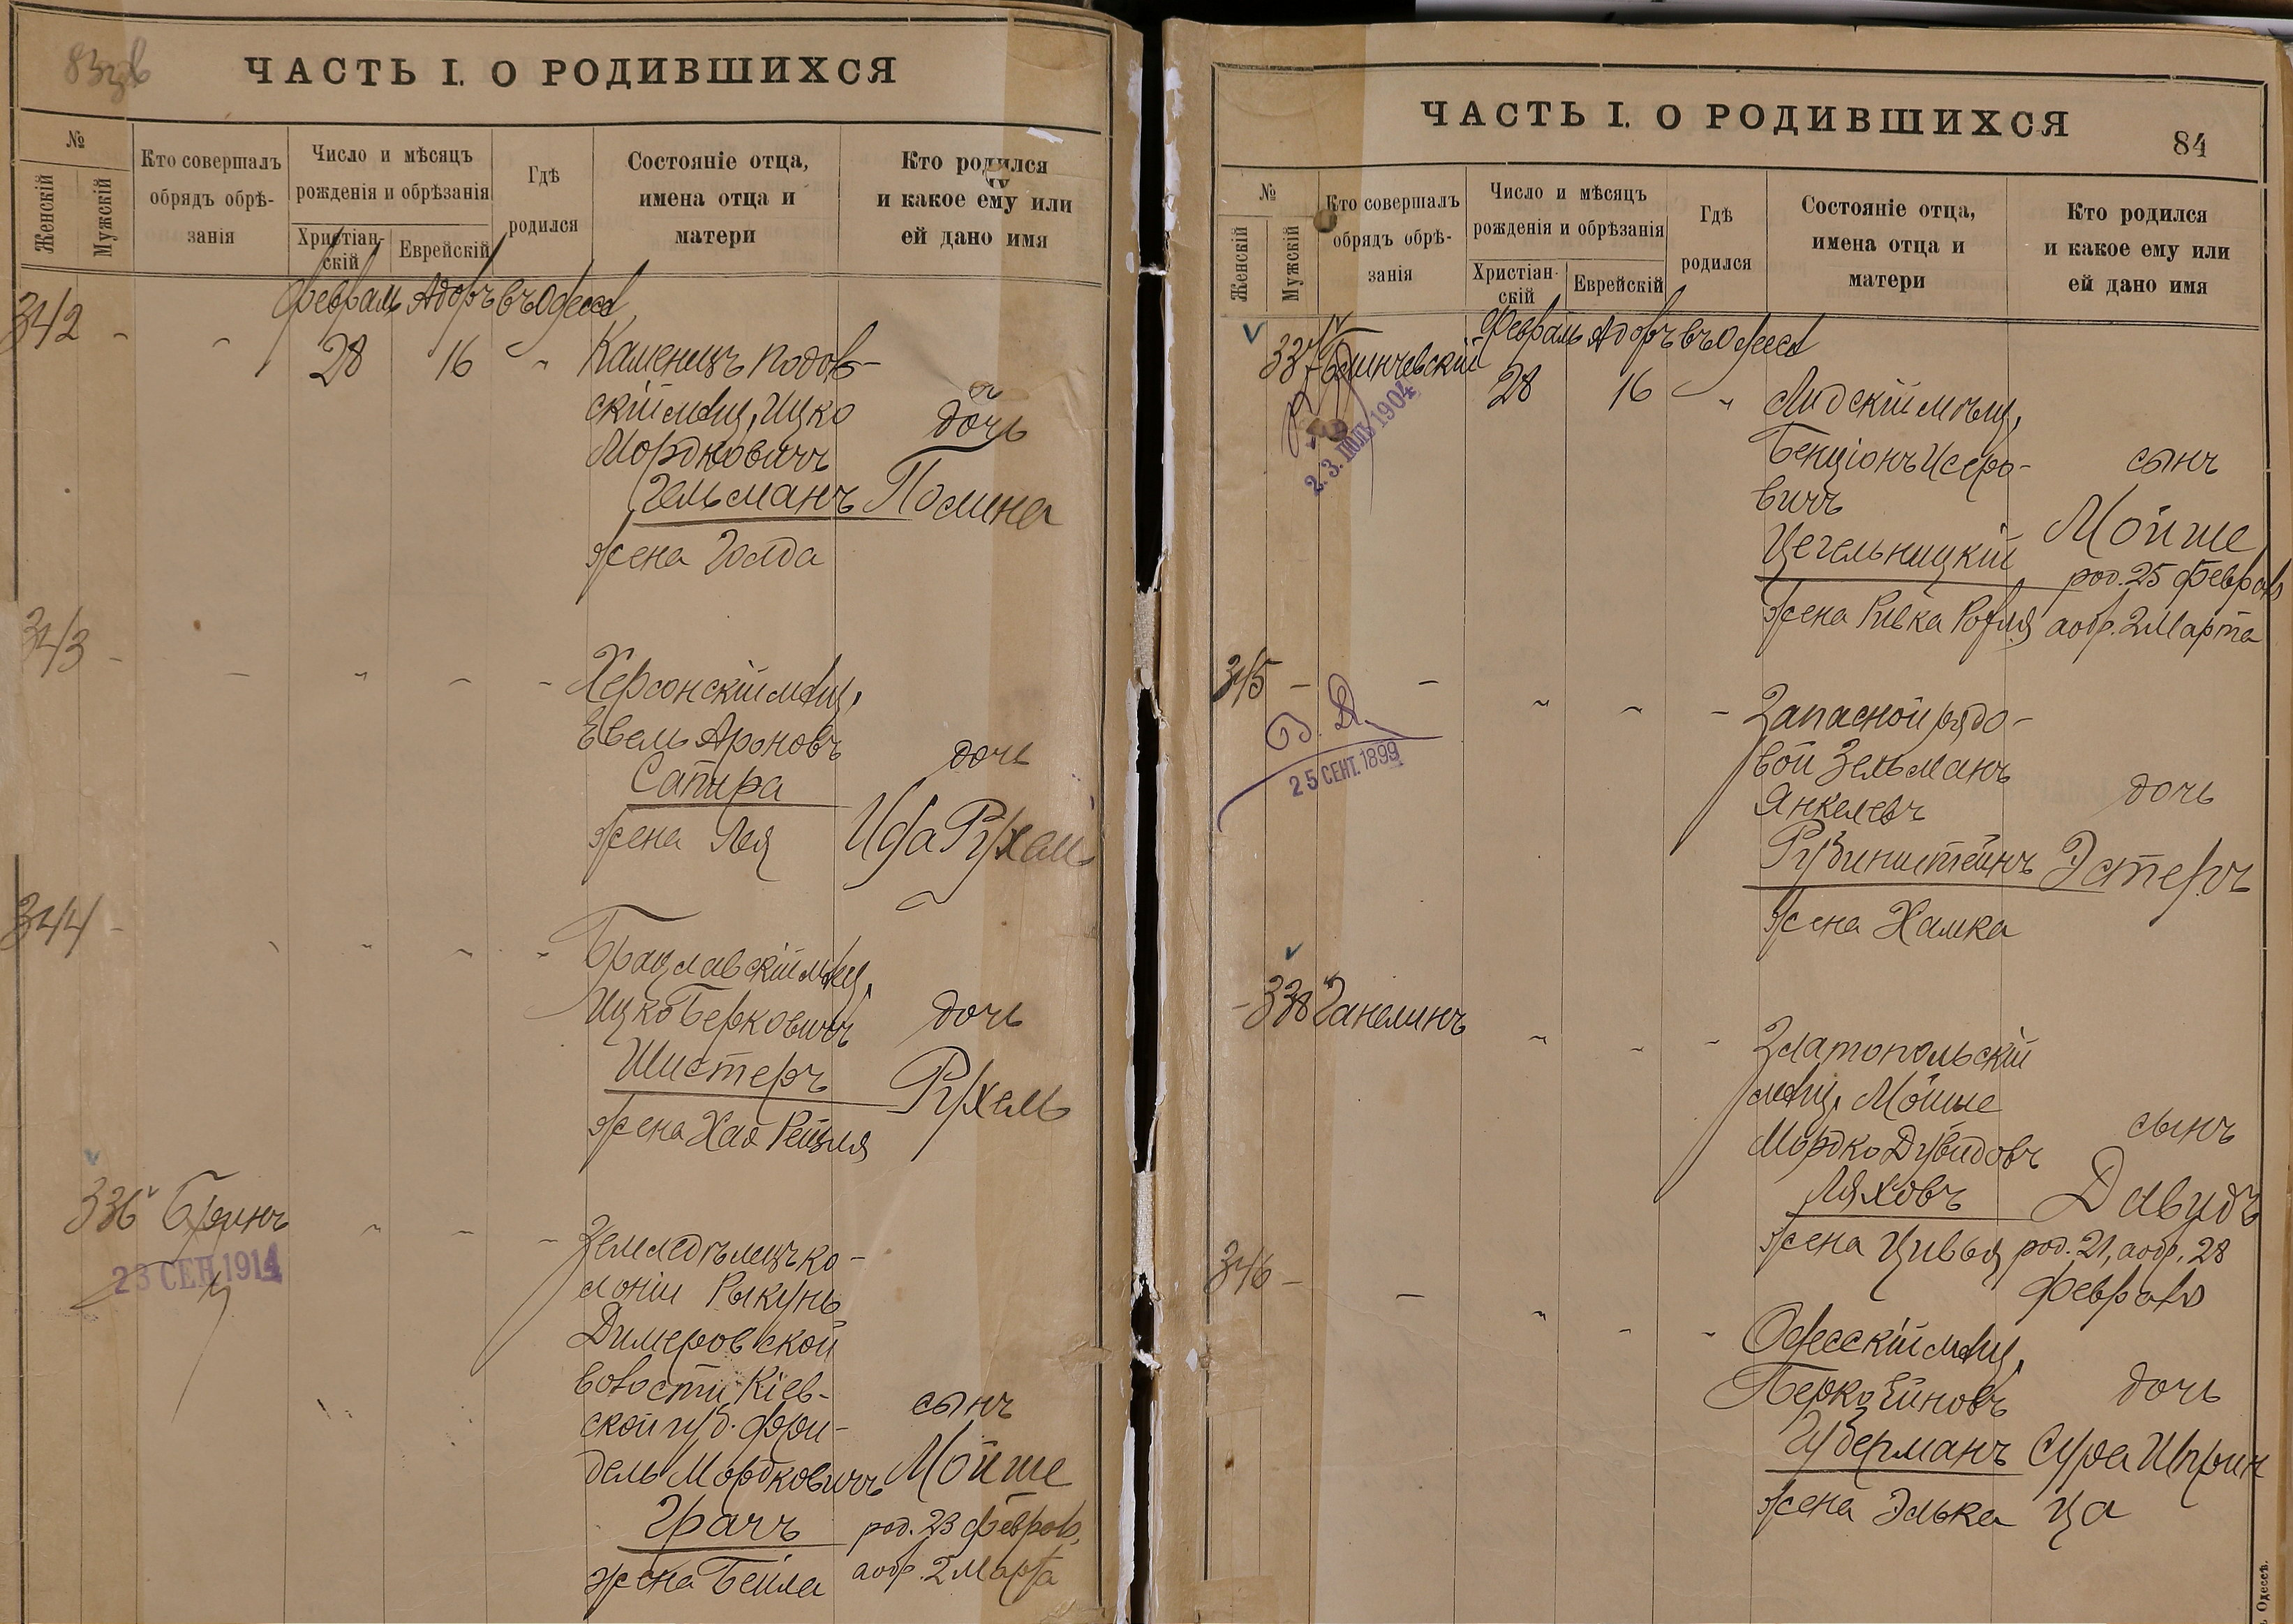 83 об
ЧАСТЬ I. О РОДИВШИХСЯ
№
Женскій
Мужскій
Кто совершалъ обрядъ обрѣ-занія
Число и мѣсяцъ рожденія и обрѣзанія
Христіан-скій
Еврейскій
Гдѣ родился
Состояніе отца, имена отца и матери
Кто родился и какое ему или ей дано имя
Февраль Адоръ въ Одессѣ
342 - -
28 16 - "
Каменецъ Подов-
скій мѣщ. Ицко
Мордковичъ
Гельманъ
жена Голда
дочь
Полина
343 - - " - -
Херсонскій мѣщ.
Евель Ароновъ
Сапира
жена Лея
дочь
Ида Рухель
344 -
Брацлавскій мѣщ.
Ицко Берковичъ
Шистеръ
жена Хая Рейзля
дочь
Рухель
336 Бринъ
23 СЕН 1914
Земледѣлецъ ко-
лоніи Рыкунь
Димеровской
волости Кіев-
ской губ. Фри-
дель Мордковичъ
Грачъ
жена Бейла
сынъ
Мойше
род. 23 Февраля,
а обр. 2 Марта
ЧАСТЬ I. О РОДИВШИХСЯ
84
№
Женскій
Мужскій
Кто совершалъ обрядъ обрѣ-занія
Число и мѣсяцъ рожденія и обрѣзанія
Христіан-скій
Еврейскій
Гдѣ родился
Состояніе отца, имена отца и матери
Кто родился и какое ему или ей дано имя
Февраль Адоръ въ Одессѣ
337
28 16 - "
23. ІЮЛ. 1904
Лидскій мѣщ.
Бенціонъ Исеро-
вичъ
Цегельницкій
жена Ривка Рохля
сынъ
Мойше
род. 25 Февраля
а обр. 2 Марта
345 - -
25 СЕНТ. 1899
Запасной рядо-
вой Зельманъ
Янкелевъ
Рубинштейнъ
жена Хамка
дочь
Эстеръ
- 338 Ганелинъ
Златопольскій
мѣщ. Мойше
Мордко Дувидовъ
Ляховъ
жена Цивья
сынъ
Давидъ
род. 21, а обр. 28
Февраля
346 - -
Одесскій мѣщ.
Берко Ейновъ
Губерманъ
жена Элька
дочь
Сура Шприн
ца
Одессѣ.